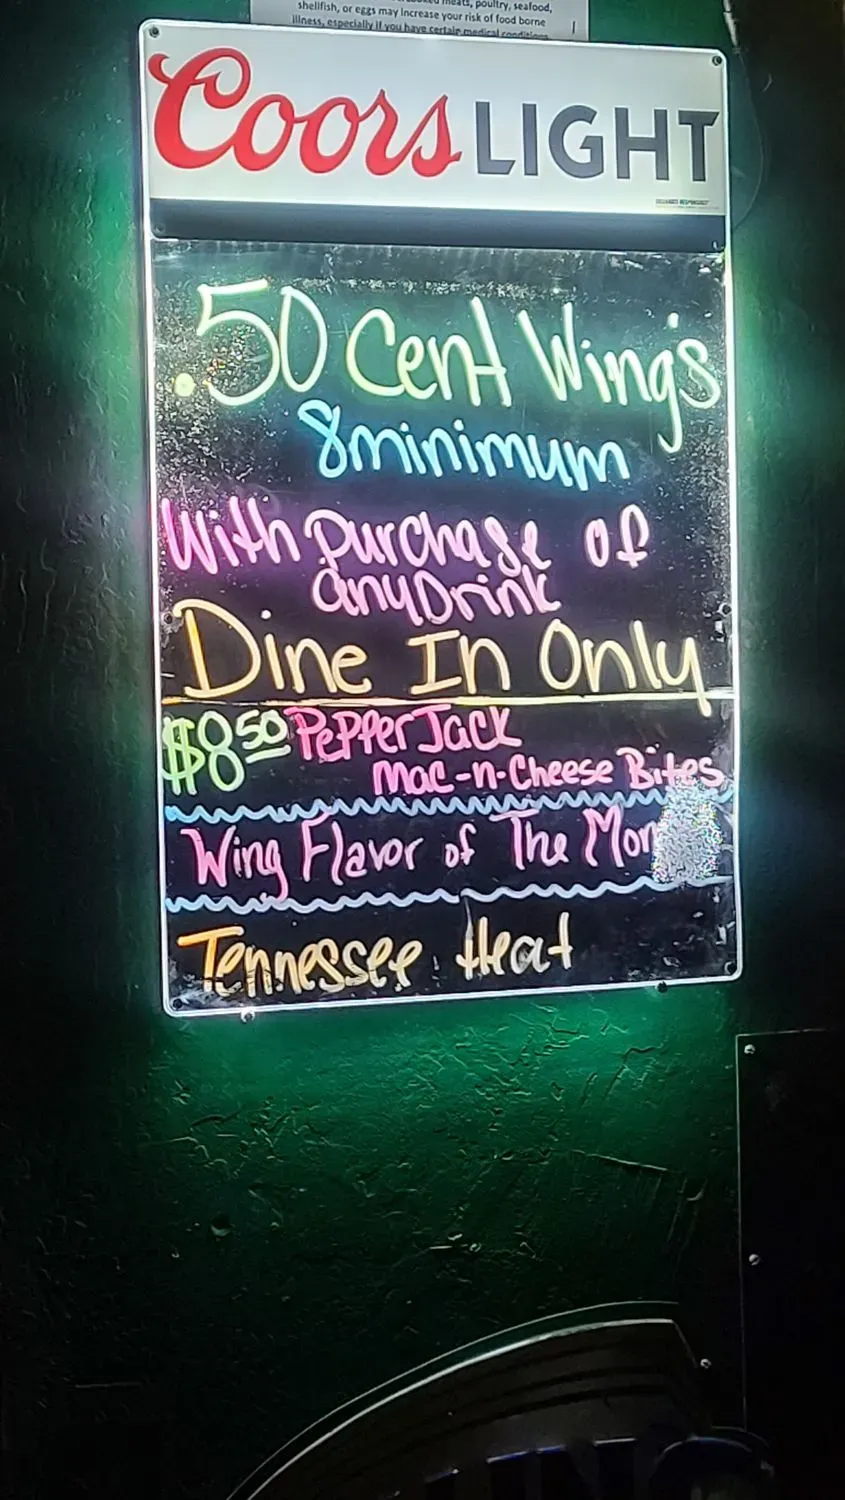 shellfish, or eggs may increase your risk of food borne
illness, especially if you have certain medical conditions.
Coors LIGHT
.50 Cent Wing's
8 minimum
With purchase of
any Drink
Dine In Only
$8.50 PePPer Jack
Mac-n-Cheese Bites
Wing Flavor of The
Tennessee Heat